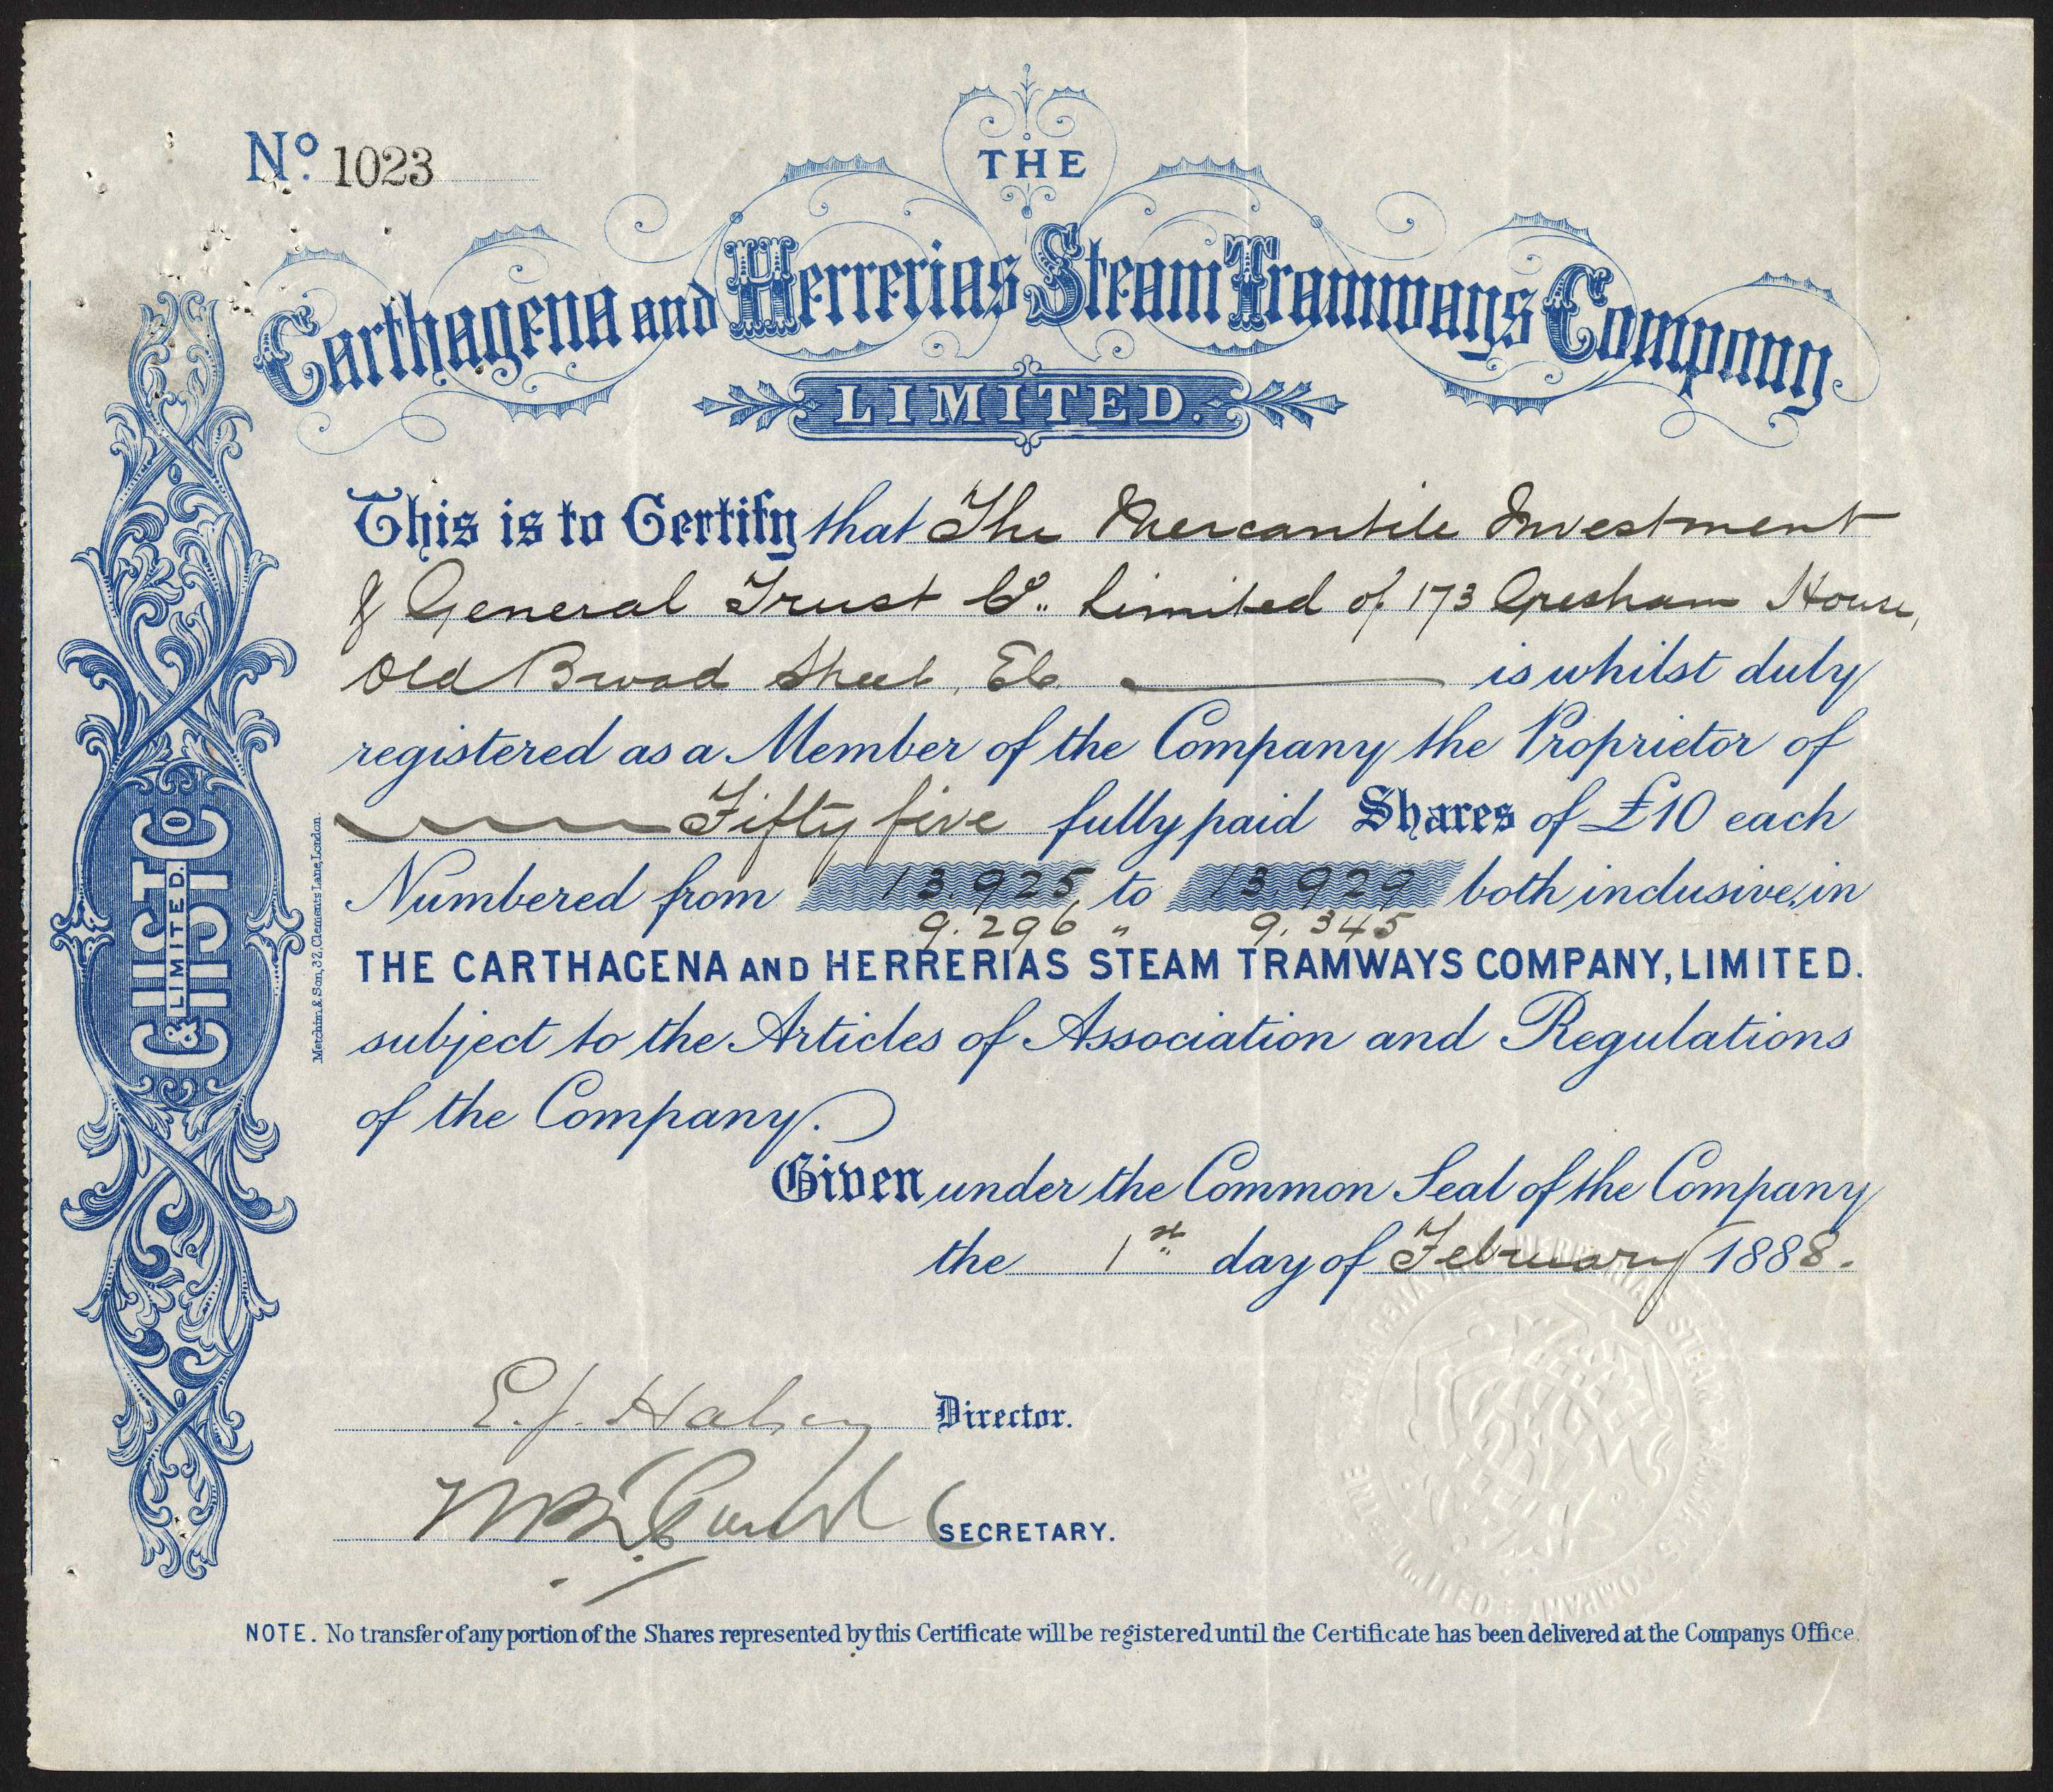 No. 1023
THE
Carthagena and Herrerias Steam Tramways Company.
LIMITED.
This is to Certify that The Mercantile Investment
& General Trust Co. Limited of 173 Gresham House,
Old Broad Street, EC. is whilst duly
registered as a Member of the Company the Proprietor of
Fifty five fully paid Shares of £10 each
Numbered from 13.925 to 13.929 both inclusive, in
9.296 " 9.345
THE CARTHAGENA AND HERRERIAS STEAM TRAMWAYS COMPANY, LIMITED.
subject to the Articles of Association and Regulations
of the Company.
Given under the Common Seal of the Company
the 1st day of February 1888.
E.J. Halsey Director.
SECRETARY.
NOTE. No transfer of any portion of the Shares represented by this Certificate will be registered until the Certificate has been delivered at the Companys Office.
C&HSTCo
LIMITED.
Metchim & Son, 32, Clements Lane, London.
THE CARTHAGENA AND HERRERIAS STEAM TRAMWAYS COMPANY LIMITED